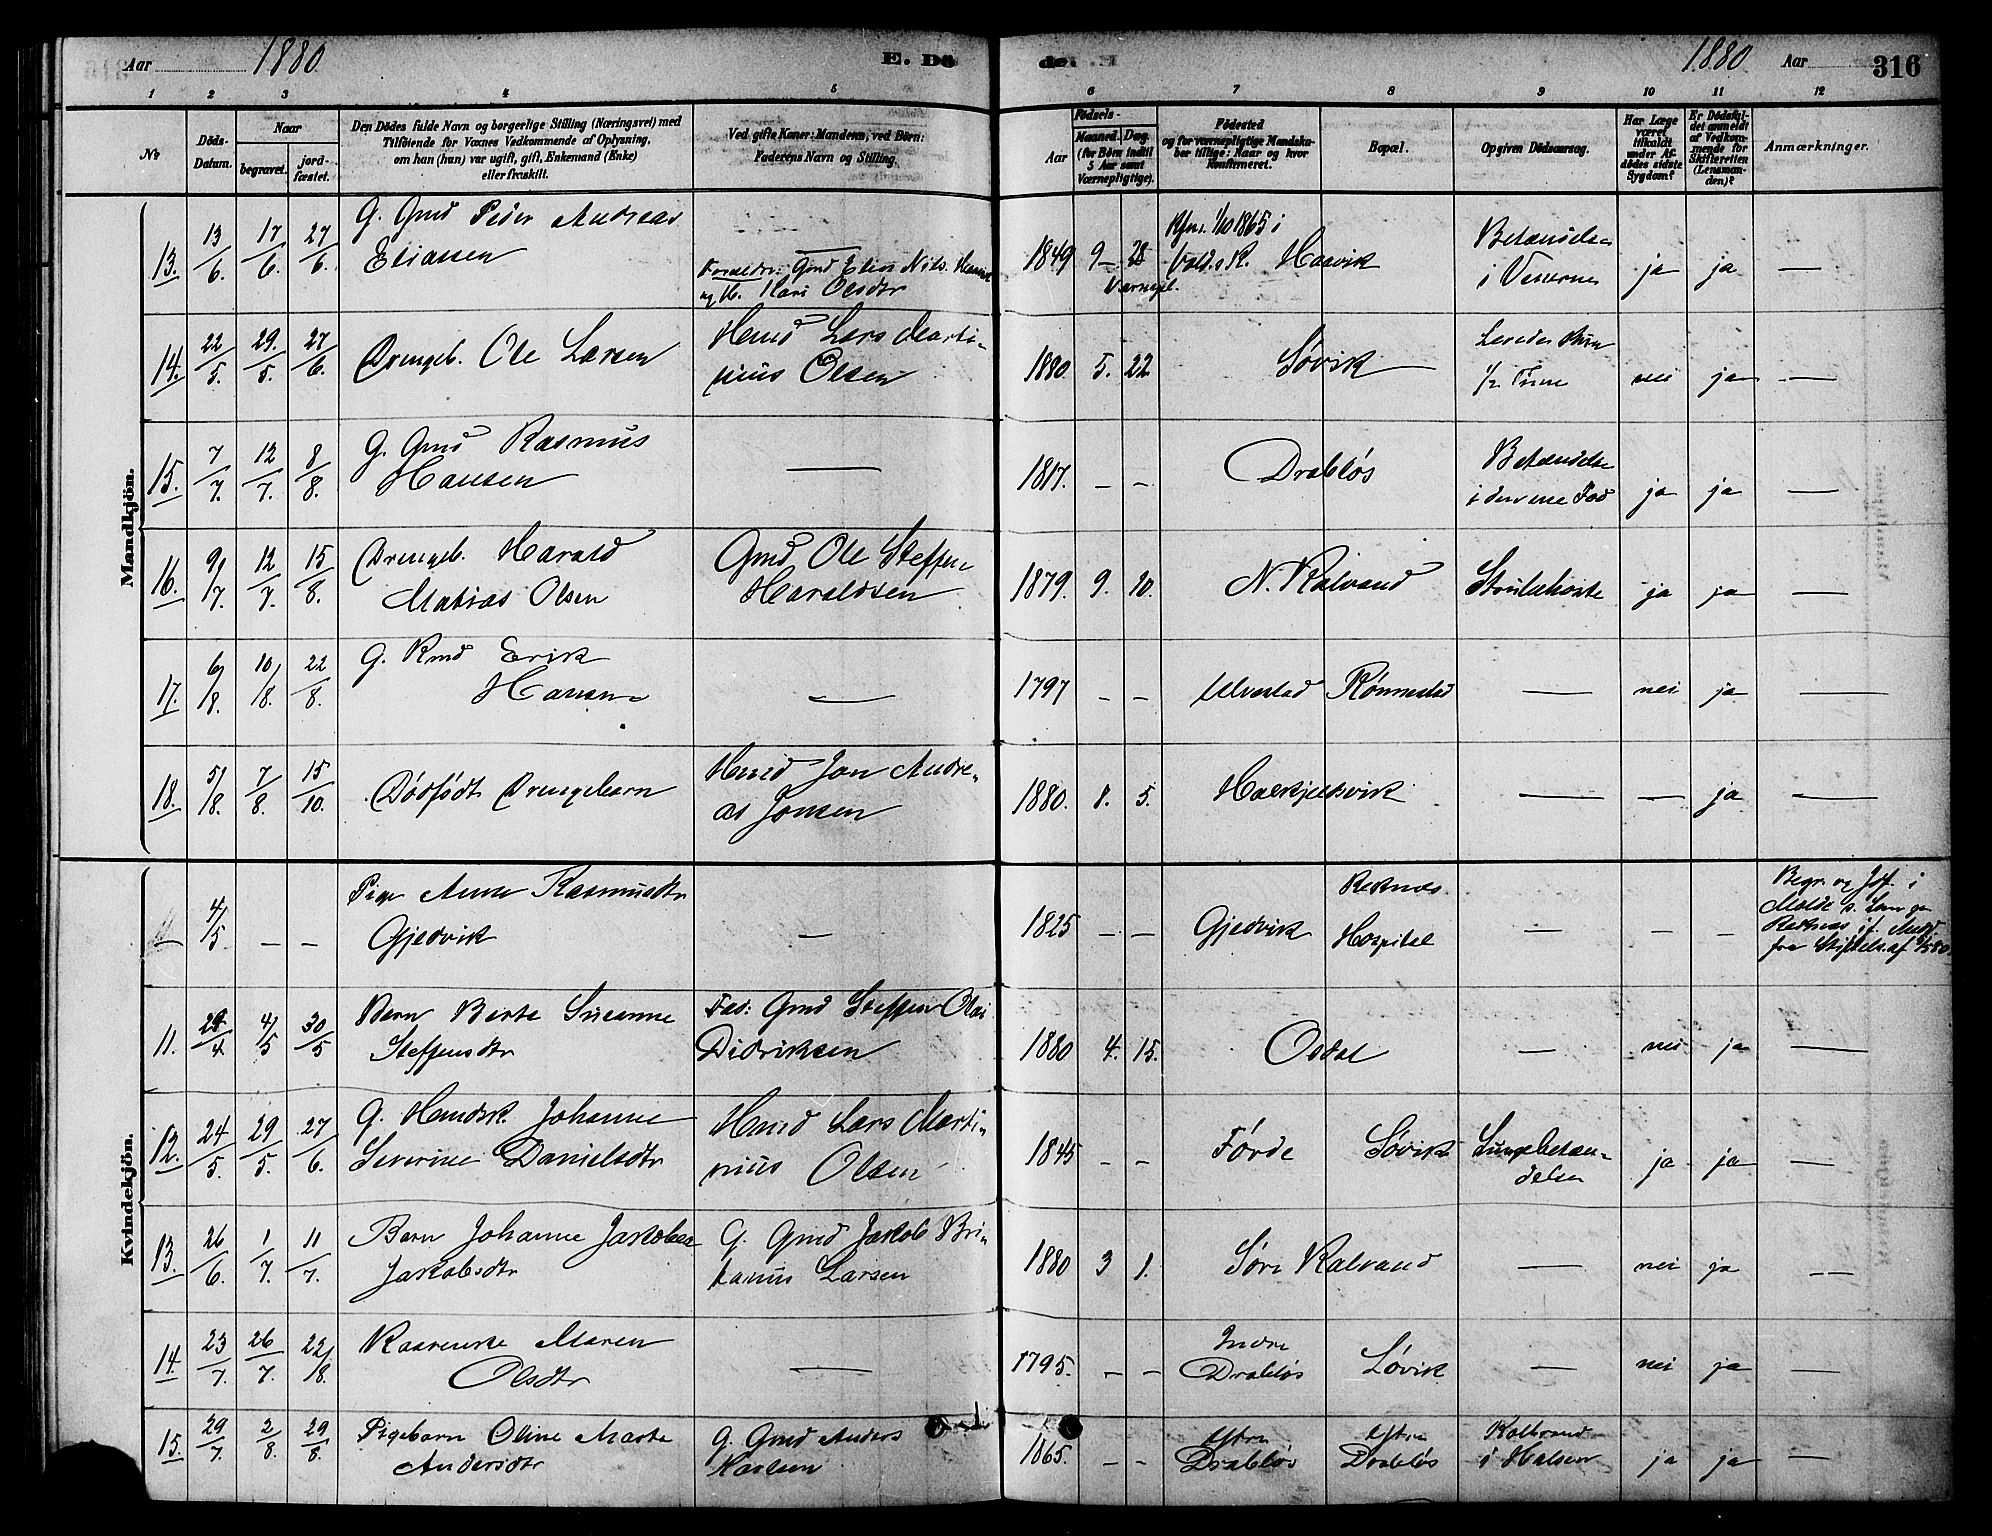 Aar 1880
E. Dö
de.
1880 Aar
316
1 2 3 4 5 6 7 8 9 10 11 12
No
Döds-
Datum.
Naar
begravet.
jord-
fæstet.
Den Dödes fulde Navn og borgerlige Stilling (Næringsvei) med
Tilföiende for Voxnes Vedkommende af Oplysning,
om han (hun) var ugift, gift, Enkemand (Enke)
eller fraskilt.
Ved gifte Koner: Mandens, ved Börn:
Faderens Navn og Stilling.
Födsels-
Aar
Maaned. Dag.
(for Börn indtil
5 Aar samt
Værnepligtige).
Födested
og for værnepligtige Mandska-
ber tillige: Naar og hvor
konfirmeret.
Bopæl.
Opgiven Dödsaarsag.
Har Læge
været
tilkaldt
under Af-
dödes sidste
Sygdom?
Er Dödsfal-
det anmeldt
af Vedkom-
mende for
Skifteretten
(Lensman-
den)?
Anmærkninger.
Mandkjön.
13. 13/6. 17/6. 27/6. G. Gmd Peder Andreas
Eliassen
Forældre: Gmd Elias Nils.
og H. Kari Olsdtr
1849 9 – 28
Værnepl.
Kfm. 1/10 1865 i
Haavik
Betændelse
i
ja ja —
14. 22/5. 29/5. 27/6. Drengeb. Ole Larsen
Hmd Lars Marti-
nius Olsen
1880. 5. 22 Søvik
Levede kun
1/2 Time
nei ja —
15. 7/7. 12/7. 8/8. G. Gmd Rasmus
Hansen
—
1817. – – Drabløs
Betændelse
i den ene Fod
ja ja —
16. 9/7. 12/7. 15/8. Drengeb. Harald
Matias Olsen
Gmd Ole Steffen
Haraldsen
1879. 9. 20. N. Kalvand Strubehoste ja ja —
17. 6/8. 10/8. 22/8. G. Kmd Erik
Hansen
—
1797 – – Ulvestad Rønnestad — nei ja —
18. 5/8. 7/8. 15/10. Dødfødt Drengebarn
Hmd Jon Andre-
as Jonsen
1880. 8. 5. — — ja —
Kvindekjön.
— 4/5 — — Pige Anne Rasmusdtr
Gjedvik
—
1825 – – Gjedvik
Reknæs
Hospital
— — —
Begr. og Jdf. i
Molde
Reknæs
11. 4/5 30/5 Barn Berte Susanne
Steffensdtr
Fad: Gmd Steffen Olai
Didriksen
1880 4. 15. Osdal — nei ja —
12. 24/5. 29/5. 27/6. G. Hmdsk. Johanne
Severine Danielsdtr
Hmd Lars Marti-
nius Olsen
1845 – – Førde Søvik
Lungebetæn-
delse
ja ja —
13. 26/6. 1/7. 11/7. Barn Johanne
Jakobsdtr
G. Gmd Jakob Bri-
tanus Larsen
1880 3 1. Søre Kalvand — nei ja —
14. 23/7. 26/7. 22/8. Kaarenke Maren
Olsdtr
—
1795. – –
Indre
Drabløs Løvik — nei ja —
15. 29/7. 2/8. 29/8. Pigebarn Oline Marta
Andersdtr
G. Gmd Anders
Karlsen
1865. – –
Ytre
Drabløs
Ytre
Drabløs
Koldbrand
i Halsen
ja ja —